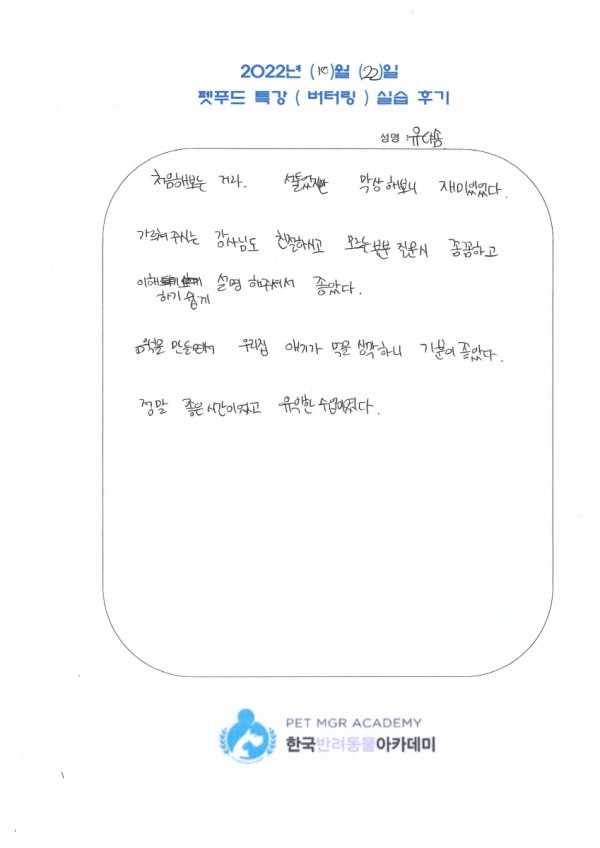 2022년 (10)월 (22)일
펫푸드 특강 ( 버터링 ) 실습 후기
성명 : 유다솜
처음해보는 거라. 서툴었지만 막상 해보니 재미있었다.
가르쳐 주시는 강사님도 친절하시고 모르는부분 질문시 꼼꼼하고
이해 설명 해주셔서 좋았다.
하기 쉽게
만들면서 우리집 애기가 먹을 생각하니 기분이 좋았다.
정말 좋은 시간이였고 유익한 수업이였다.
PET MGR ACADEMY
한국반려동물아카데미